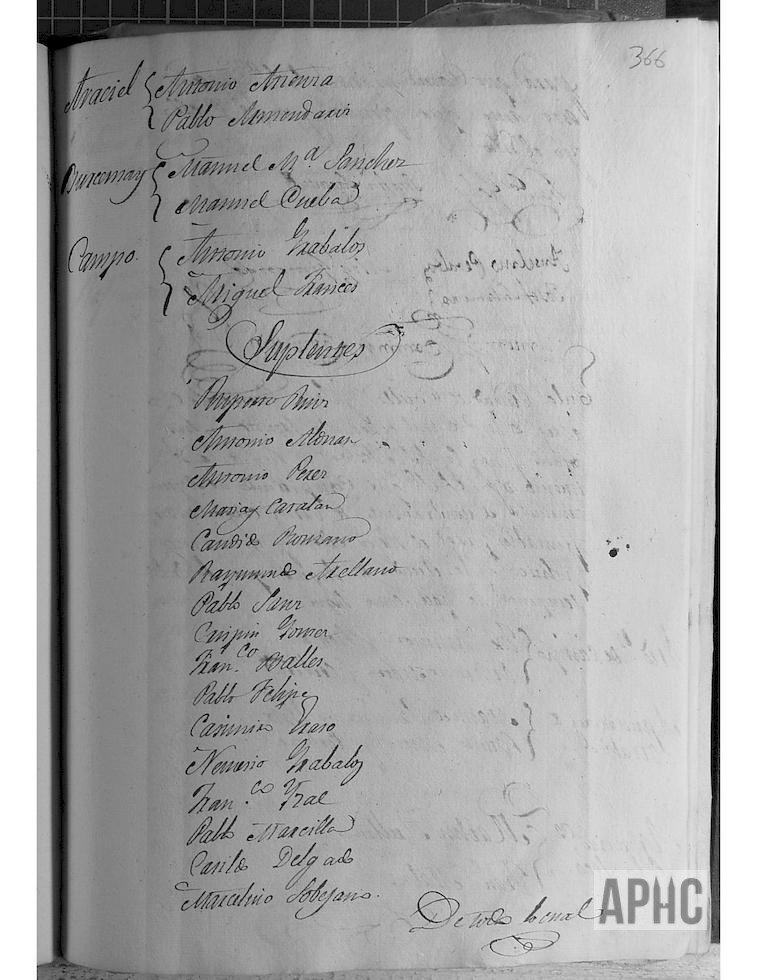 366
Araciel { Antonio Atienza
Pablo Armendariz
Burcemay { Manuel Mª Sanchez
Manuel Cueba
Campo. { Antonio Grabalos
Miguel Frances
Suplentes
Ruperto Ruiz
Antonio Alduan
Antonio Perez
Matias Catalan
Candido Ronzano
Raymundo Arellano
Pablo Sanz
Crispin Gomez
Fran.co Valles
Pablo Felipe
Casimiro Eraso
Nemesio Grabalos
Fran.co Gral
Pablo Marcilla
Casildo Delgado
Marcelino Sobejano.
De todo lo cual
APHC